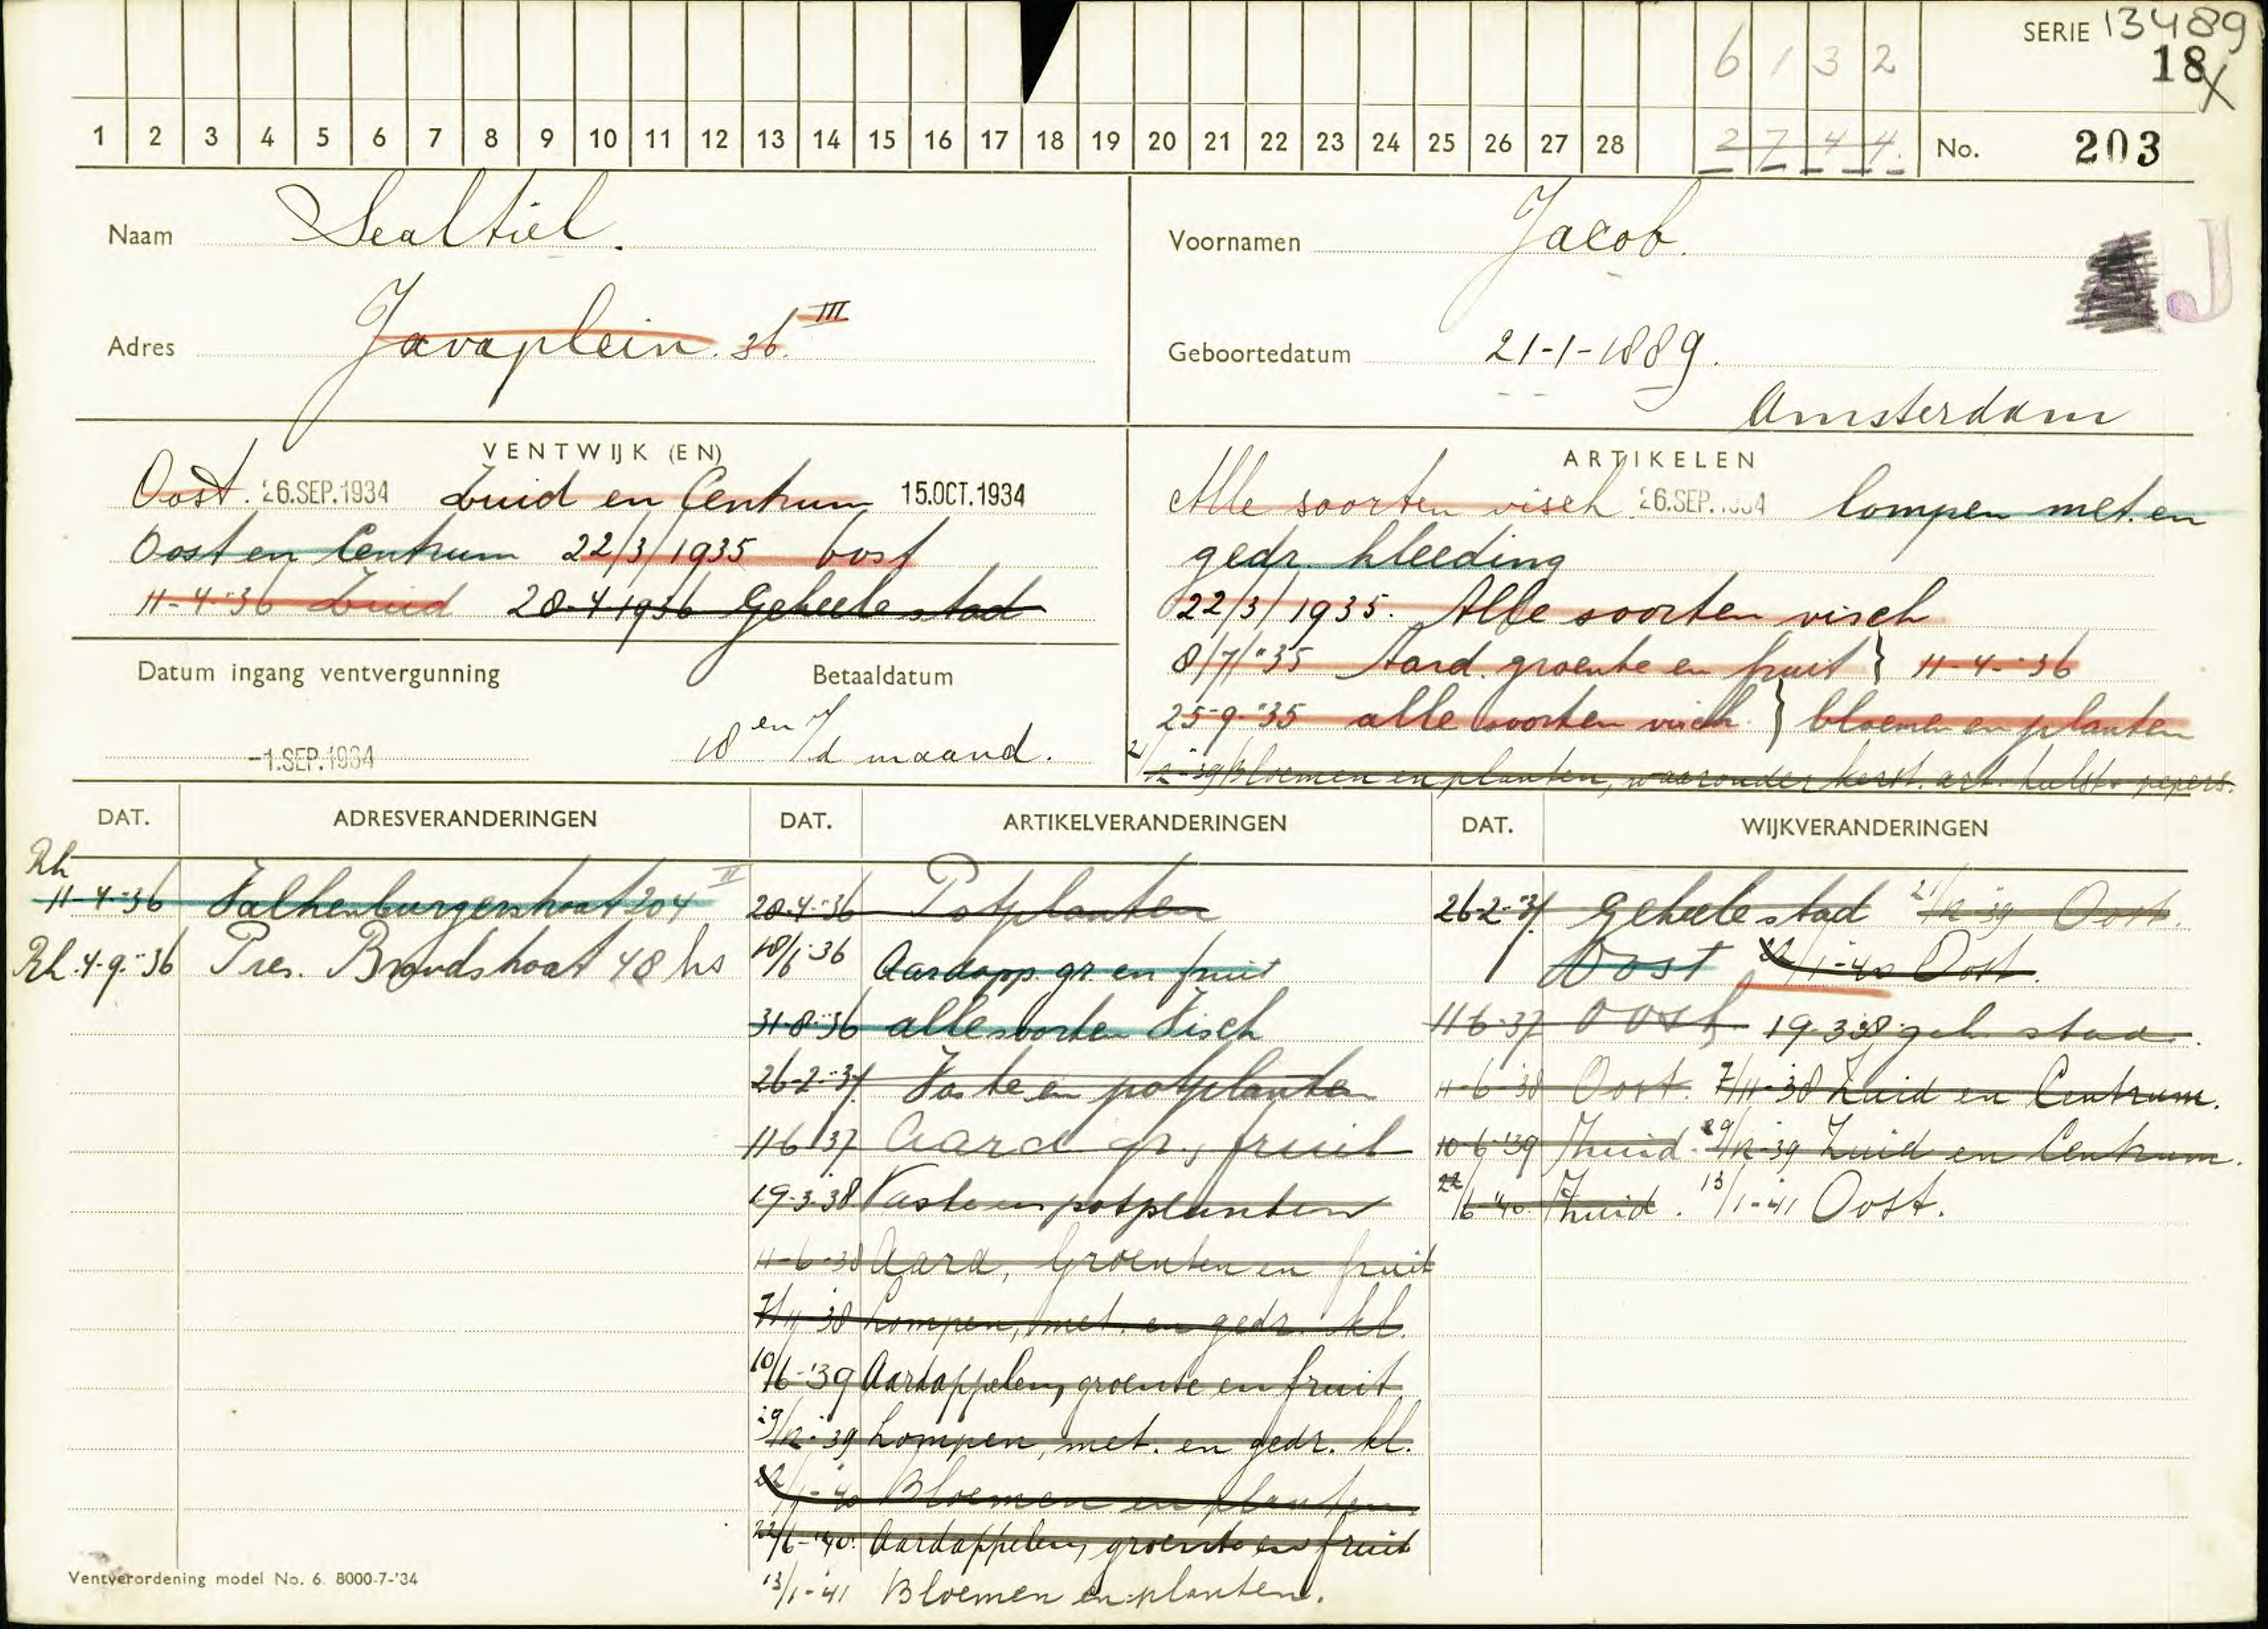 SERIE 13489
6 1 3 2
18 X
1 2 3 4 5 6 7 8 9 10 11 12 13 14 15 16 17 18 19 20 21 22 23 24 25 26 27 28 2 7 4 4. No. 203
Naam Sealtiel.
Voornamen Jacob.
J
Adres Javaplein. 36. III
Geboortedatum 21-1-1889.
Amsterdam
VENTWIJK (EN)
Oost. 26.SEP.1934 Zuid en Centrum 15.OCT.1934
Oost en Centrum 22/3/1935 Oost
11-4-'36 Zuid 28-4 1936 Geheele stad
ARTIKELEN
Alle soorten visch 26.SEP.1934 lompen met. en
gedr. kleeding
22/3/1935. Alle soorten visch
8/7/"35 Aard. groente en fruit } 11-4-"36
25-9-"35 alle soorten visch. } bloemen en planten
21/12-'39 Bloemen en planten, waaronder kerst. art. hulst + pepers.
Datum ingang ventvergunning
-1.SEP.1934
Betaaldatum
18 en 1/d maand.
DAT. ADRESVERANDERINGEN
Rh
11-4-"36 Valkenburgerstraat 204 II
Rh. 4-9-"36 Pres. Brandstraat 48 hs
DAT. ARTIKELVERANDERINGEN
28-4-"36 Potplanten
18/6 36 Aardapp. gr. en fruit
31-8-"36 alle soorten Visch
26-2-"37 Vaste en potplanten
11 6 '37 Aard gr., fruit
19-3-38 Vaste en potplanten
11-6-38 Aard, Groenten en fruit
7/11-'38 Lompen, met. en gedr. kl.
10/6-'39 Aardappelen, groente en fruit.
29/12-'39 Lompen, met. en gedr. kl.
22/1-'40 Bloemen en planten.
22/6-'40. Aardappelen, groente en fruit
13/1-'41 Bloemen en planten.
DAT. WIJKVERANDERINGEN
26-2-"37 Geheele stad 21/12-39 Oost.
Oost 22/1-40 Oost.
11 6-37 Oost 19-3-38 geh. stad.
11-6-38 Oost. 7/11-'38 Zuid en Centrum.
10-6-'39 Zuid. 29/12-39 Zuid en Centrum.
22/6-'40. Zuid. 13/1-'41 Oost.
Ventverordening model No. 6. 8000-7-'34